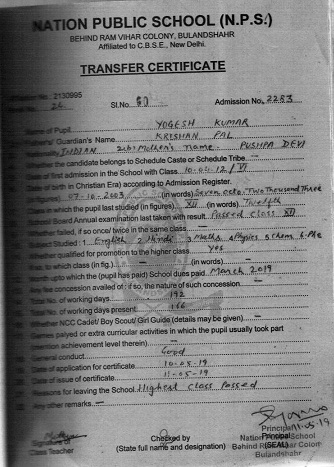 NATION PUBLIC SCHOOL (N.P.S.)
BEHIND RAM VIHAR COLONY, BULANDSHAHR
Affiliated to C.B.S.E., New Delhi.
TRANSFER CERTIFICATE
No. 2130995
No. 24 Sl.No. 80 Admission No. 2283
Name of Pupil YOGESH KUMAR
Guardian's Name KRISHAN PAL
INDIAN Mother's name - PUSHPA DEVI
Whether the candidate belongs to Schedule Caste or Schedule Tribe
Date of first admission in the School with Class 10-04-12 / VI
Date of birth in Christian Era) according to Admission Register.
07-10-2003 (in words) Seven octo. Two Thousand Three
in which the pupil last studied (in figures) XII (in words) Twelfth
Board Annual examination last taken with result Passed class XII
Whether failed, if so once/ twice in the same class
Subject Studied : 1 English 2 Hindi 3 Maths 4 Physics 5 Chem 6 Phe
Whether qualified for promotion to the higher class Yes
to which class (in fig.) (in words)
upto which the (pupil has paid) School dues paid March 2019
fee concession availed of : if so, the nature of such concession
Total No. of working days 192
Total No. of working days present 166
Whether NCC Cadet/ Boy Scout/ Girl Guide (details may be given)
Games palyed or extra curricular activities in which the pupil usually took part
(mention achievement level therein)
General conduct Good
Date of application for certificate 10-05-19
Date of issue of certificate 11-05-19
Reasons for leaving the School Highest class Passed
Any other remarks
Signature of
Class Teacher
Checked by
(State full name and designation)
Principal 11-05-19
Principal
(SEAL)
Nation Public School
Behind Ram Vihar Colony
Bulandshahr